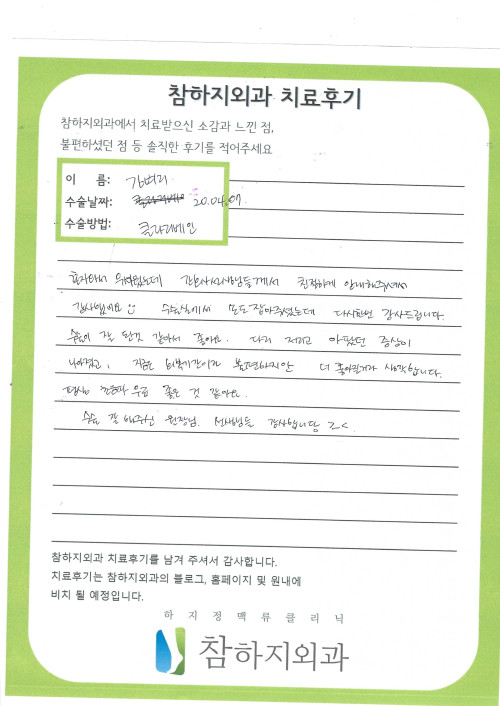 참하지외과 치료후기
참하지외과에서 치료받으신 소감과 느낀 점,
불편하셨던 점 등 솔직한 후기를 적어주세요
이 름:
수술날짜: 20.04.07
수술방법: 클라리베인
혼자와서 무서웠는데 간호사선생님들께서 친절하게 안내해주셔서
감사했어요 수술실에서 손도 잡아주셨는데 다시한번 감사드립니다
수술이 잘 된것 같아서 좋아요. 다리 저리고 아팠던 증상이
나아졌고, 지금은 회복기간이라 불편하지만 더 좋아질거라 생각합니다.
좋은 것 같아요.
수술 잘 해주신 원장님, 선생님들 감사합니당 >.<
참하지외과 치료후기를 남겨 주셔서 감사합니다.
치료후기는 참하지외과의 블로그, 홈페이지 및 원내에
비치 될 예정입니다.
하지정맥류클리닉
참하지외과